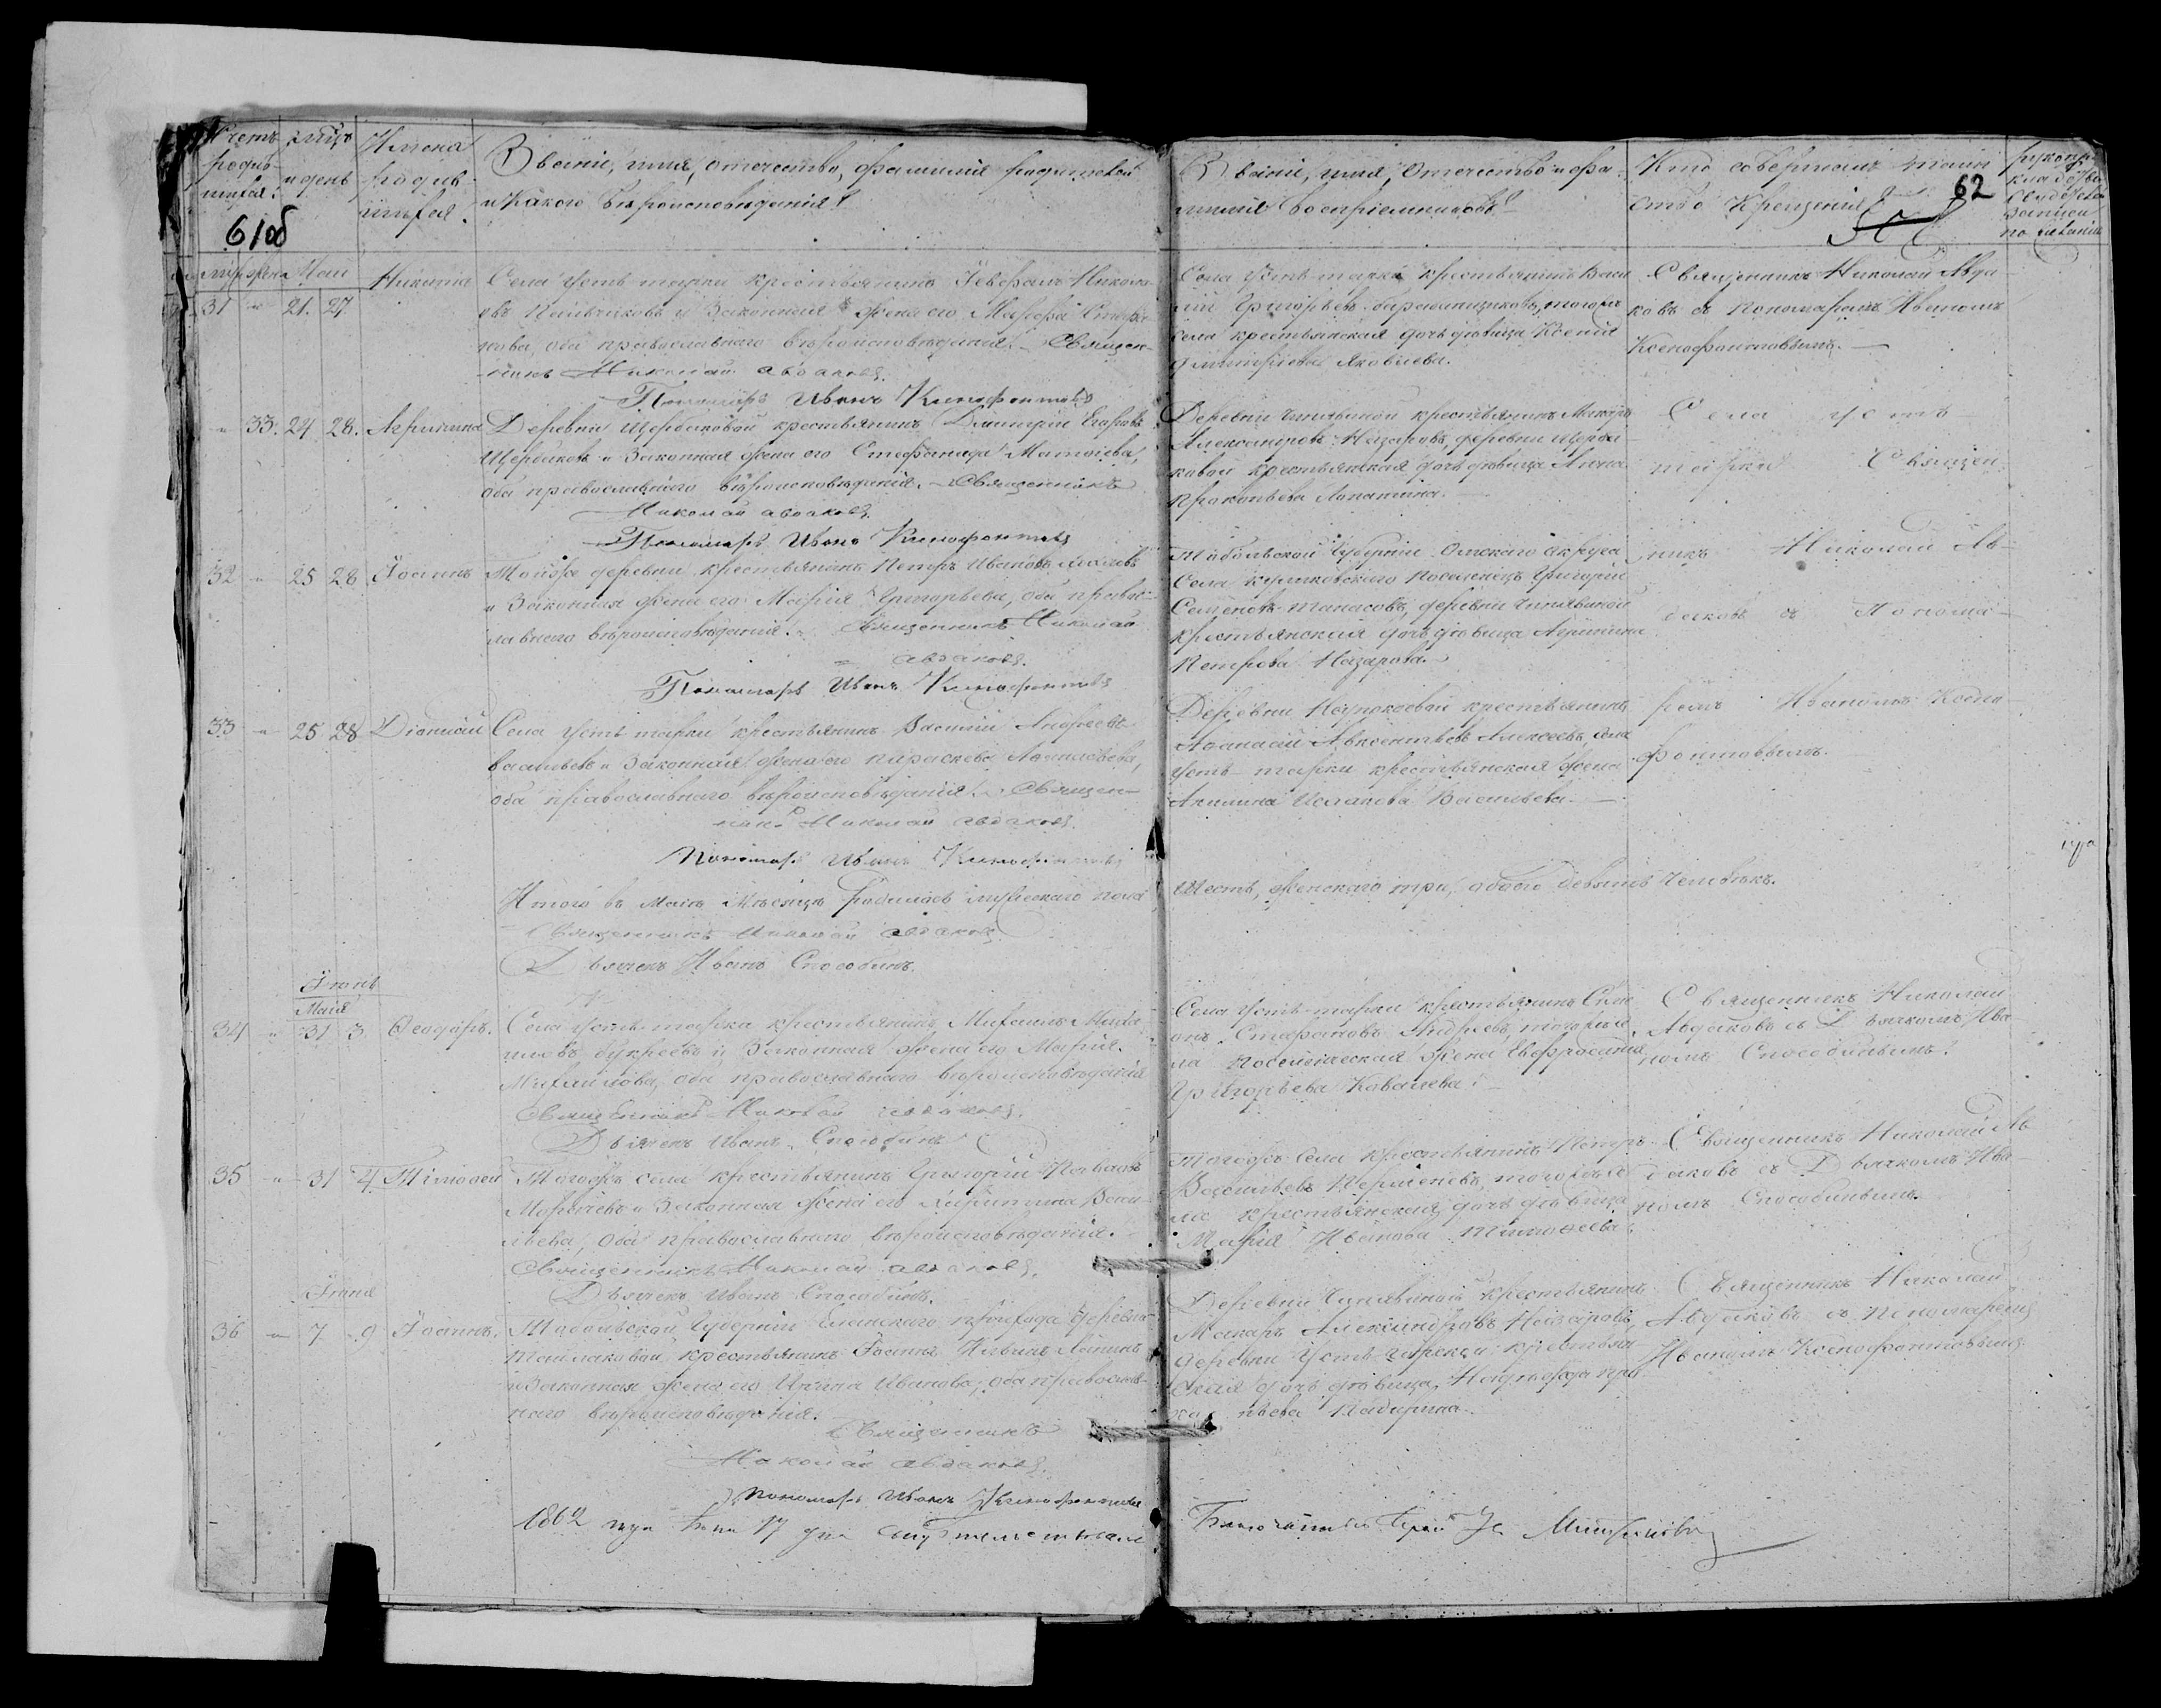 Счетъ
родив-
шихся.
мцъ
и день
Имена
родив-
шихся.
Званіе, имя, отечество, фамилія родителей
и какого вѣроисповѣданія?
61об
Званіе, имя, отечество и фа-
милія воспріемниковъ?
Кто совершалъ таин-
ство крещенія?
62
рукопри-
кладство
свидѣтел.
записи
по желанію
Маія
31 " 21. 27
Никита
Села Усть-тарки крестьянинъ Никола-
евъ и законная жена его Марѳа Стефа-
нова, оба православнаго вѣроисповѣданія. Священ-
никъ Николай Авдаковъ.
Пономарь Иванъ Ксенофонтовъ
Села Усть-тарки крестьянинъ Васи-
лій Григорьевъ тогожъ
села крестьянская дочь дѣвица Ксенія
Димитріева Яковлева.
Священникъ Николай Авда-
ковъ съ Пономаремъ Иваномъ
Ксенофонтовымъ.
" 33. 24 28. Агрипина
Деревни Щербаковой крестьянинъ Димитрій Егоровъ
Щербаковъ и законная жена его Стефанида Матвіева,
оба православнаго вѣроисповѣданія. Священникъ
Николай Авдаковъ.
Пономарь Иванъ Ксенофонтовъ
Деревни Чинявиной крестьянинъ Макаръ
Александровъ Назаровъ, деревни Щерба-
ковой крестьянская дочь дѣвица Анна
Прокопьева Лопатина.
Села Усть-
тарки Священ-
32 " 25 28 Іоаннъ
Тойже деревни крестьянинъ Петръ Ивановъ
и законная жена его Марія Григорьева, оба правос-
лавнаго вѣроисповѣданія. Священникъ Николай
Авдаковъ.
Пономарь Иванъ Ксенофонтовъ
Тобольской Губерніи Омскаго округа
села Куликовскаго поселенецъ Григорій
Семеновъ Танасовъ, деревни Чинявиной
крестьянская дочь дѣвица Агрипина
Петрова Назарова.
никъ Николай Ав-
даковъ съ Понома-
33 " 25 28 Діонисій
Села Усть-тарки крестьянинъ Василій Андреевъ
Васильевъ и законная жена его Параскева Аѳанасьева,
оба православнаго вѣроисповѣданія. Священ-
никъ Николай Авдаковъ.
Пономарь Иванъ Ксенофонтовъ
Деревни крестьянинъ
Аѳанасій Авксентьевъ Алексеевъ, села
Усть-тарки крестьянская жена
Акилина Исаакова Васильева.
ремъ Иваномъ Ксено-
фонтовымъ.
Итого въ Маіѣ мѣсяцѣ родилось мужескаго пола
Шесть, женскаго три, обоего девять человѣкъ.
Священникъ Николай Авдаковъ
Дьячекъ Иванъ Способинъ.
Іюнь
Маія
34 " 31 3. Ѳеодоръ.
Села Усть-тарки крестьянинъ Михаилъ Михаи-
ловъ Букреевъ и законная жена его Марія
Михайлова, оба православнаго вѣроисповѣданія
Священникъ Николай Авдаковъ.
Дьячекъ Иванъ Способинъ
Села Усть-тарки крестьянинъ Сим-
онъ Стефановъ Андреевъ, тогоже се-
ла поселенческая жена Евфросинія
Григорьева Ковалева.
Священникъ Николай
Авдаковъ съ Дьячкомъ Ива-
номъ Способинымъ.
35 " 31 4 Тимоѳей
Тогоже села крестьянинъ Григорій Павловъ
и законная жена его Харитина Васи-
льева, оба православнаго вѣроисповѣданія.
Священникъ Николай Авдаковъ.
Дьячекъ Иванъ Способинъ.
Тогоже села крестьянинъ Петръ
Васильевъ тогоже се-
ла крестьянская дочь дѣвица
Марія Иванова Тимоѳеева.
Священникъ Николай Ав-
даковъ съ Дьячкомъ Ива-
номъ Способинымъ.
Іюня
36 " 7 9 Іоаннъ.
Тобольской Губерніи Еланскаго прихода деревни
крестьянинъ Іоаннъ
и законная жена его Ирина Иванова, оба православ-
наго вѣроисповѣданія.
Священникъ
Николай Авдаковъ.
Пономарь Иванъ Ксенофонтовъ
Деревни Чинявиной крестьянинъ
Макаръ Александровъ Назаровъ,
деревни крестьян-
ская дочь дѣвица Надежда Про-
копьева
Священникъ Николай
Авдаковъ съ Пономаремъ
Иваномъ Ксенофонтовымъ
1862 года Іюня 17 дня свидѣтельствовалъ
Благочинный